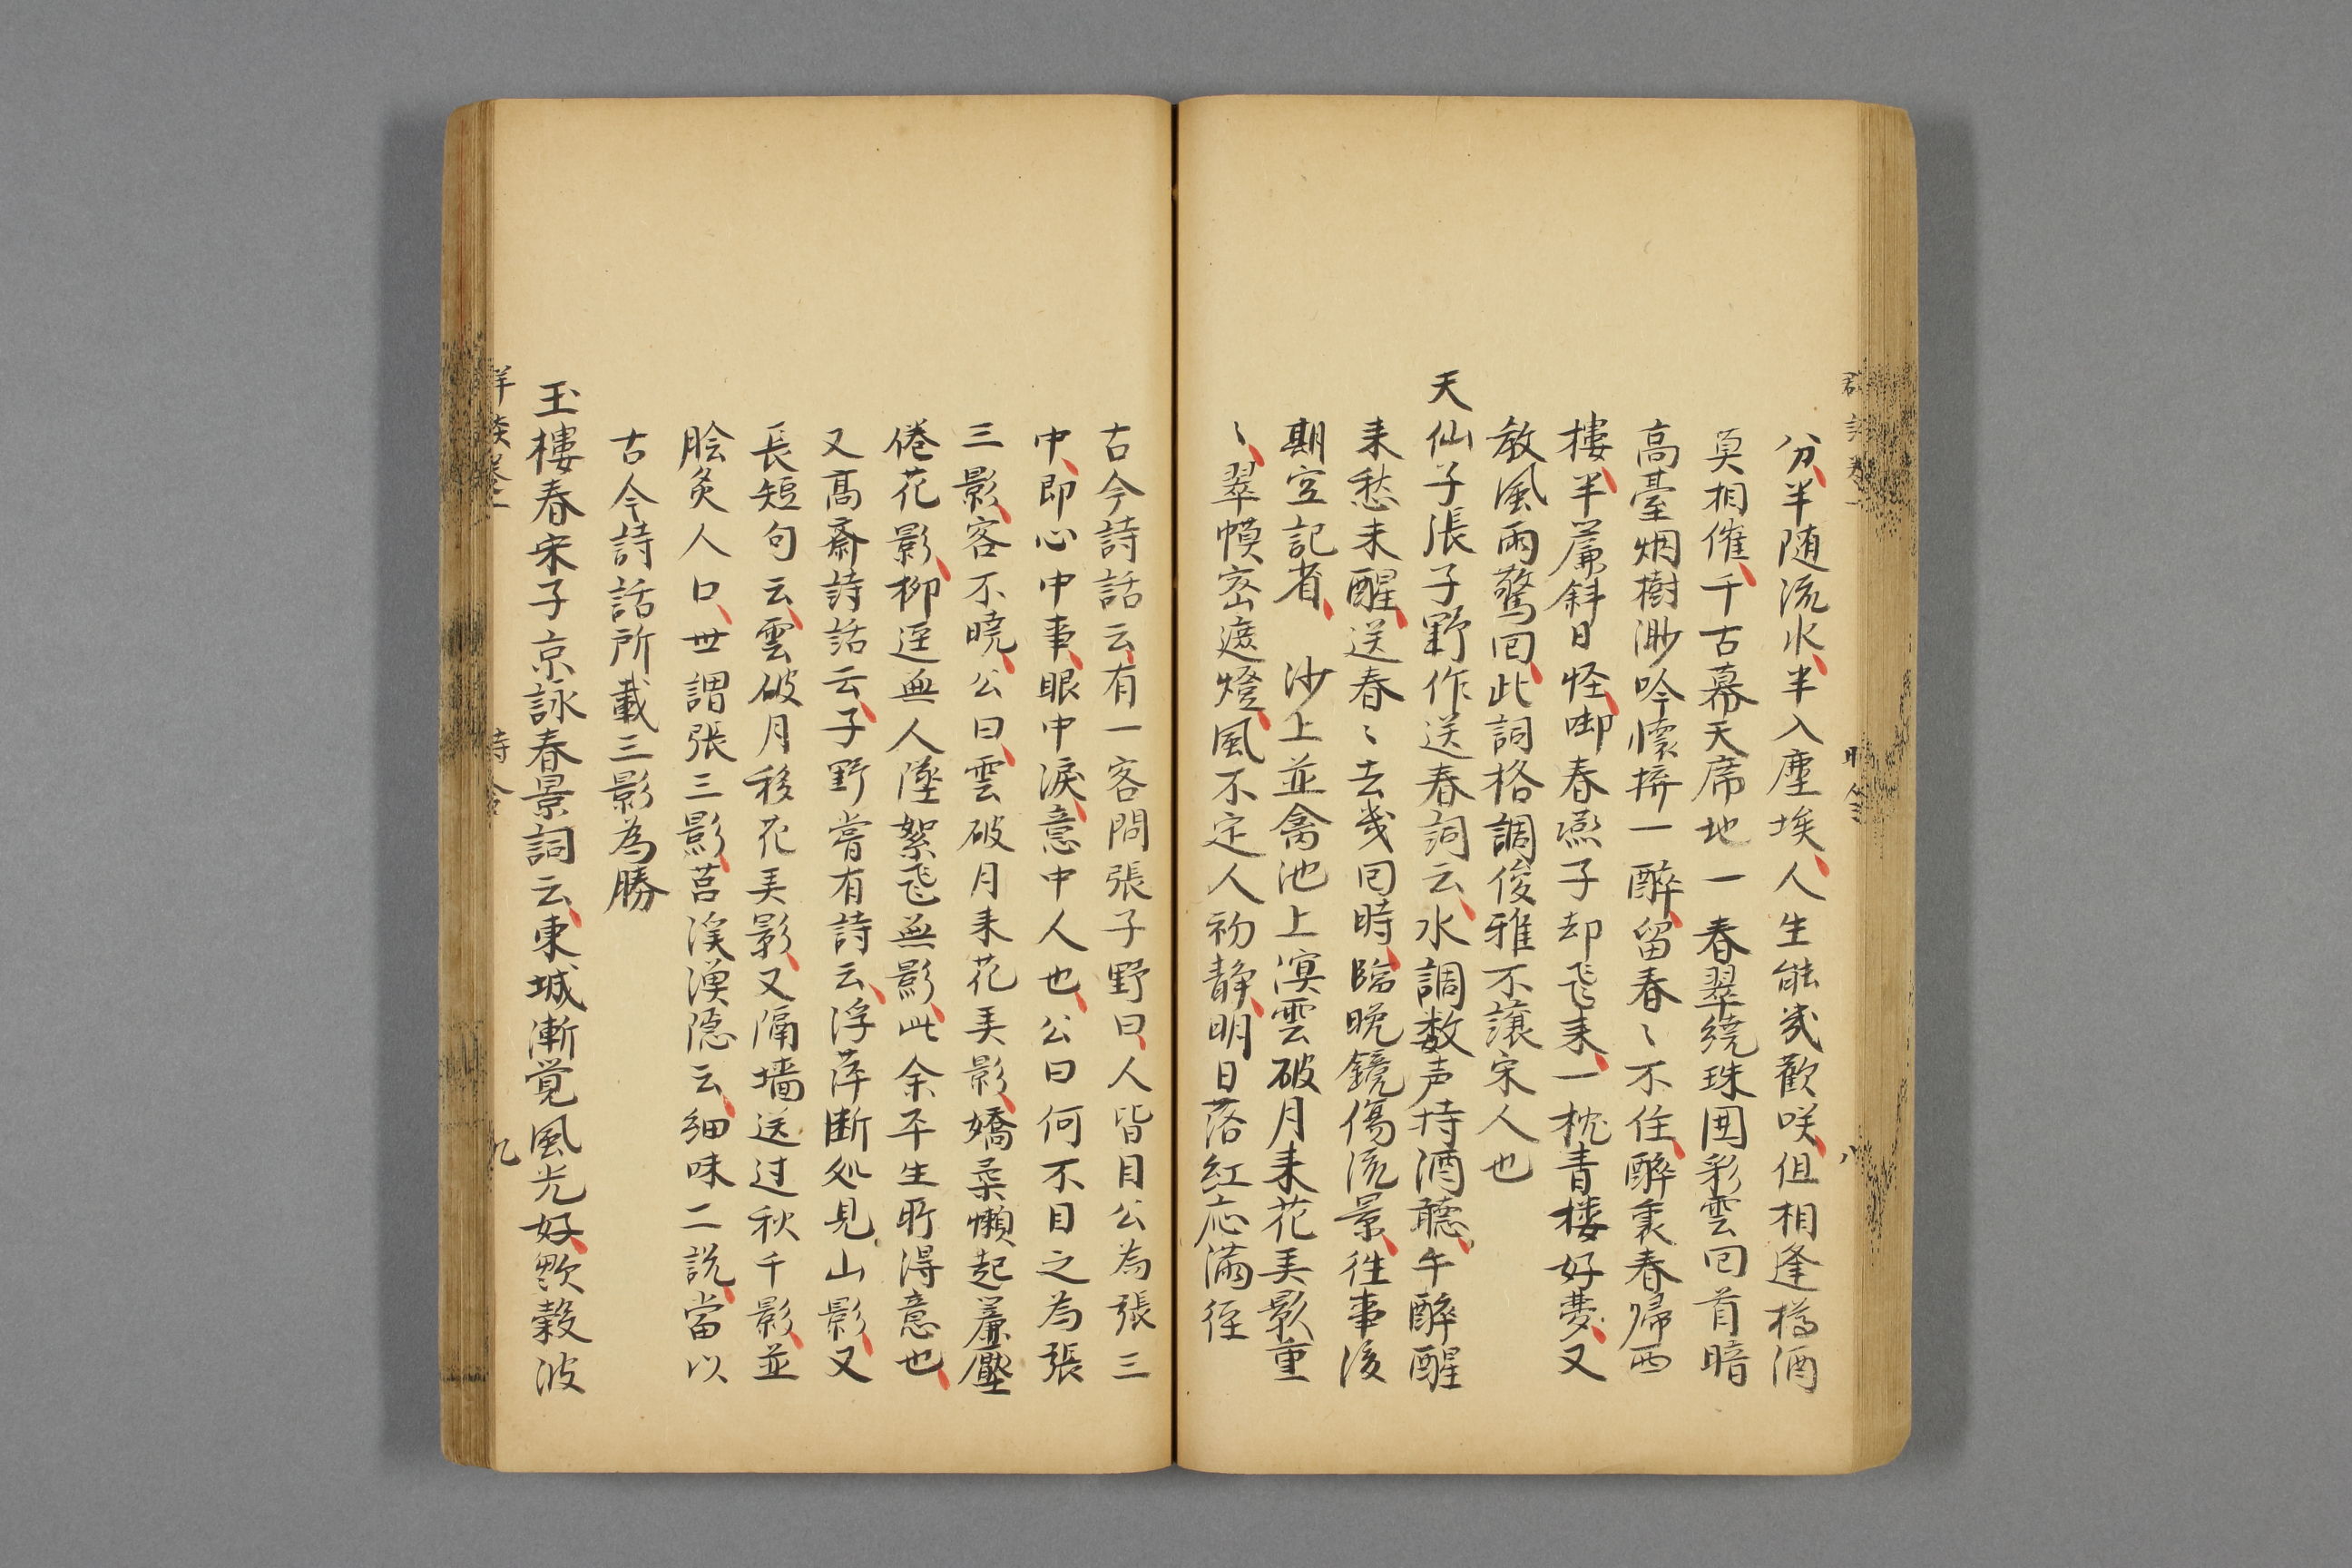 分半随流水半入塵埃人生能幾歡咲但相逢樽酒
莫相催千古幕天席地一春翠繞珠囲彩雲囘首暗
高臺烟樹渺吟懷拚一醉留春〻不住醉裏春歸西
樓半簾斜日怪啣春燕子却飛来一枕青楼好夢又
教風雨驚囘此詞格調俊雅不讓宋人也
天仙子張子野作送春詞云水調数声持酒聽午醉醒
来愁未醒送春〻去幾囘時臨晚鏡傷流景往事後
期空記省　沙上並禽池上溟雲破月来花弄影重
〻翠幙宻遮燈風不定人初静明日落紅応滿徑
古今詩話云有一客問張子野曰人皆目公為張三
中即心中事眼中淚意中人也公曰何不目之為張
三影客不曉公曰雲破月来花弄影嬌柔懶起簾壓
倦花影柳逕無人墜絮飛無影此余平生所得意也
又髙斎詩話云子野嘗有詩云浮萍断処見山影又
長短句云雲破月移花弄影又隔墻送过秋千影並
膾炙人口世謂張三影苕渓漁隠云細味二説當以
古今詩話所載三影為勝
玉樓春宋子京詠春景詞云東城漸覚風光好皺縠波
九